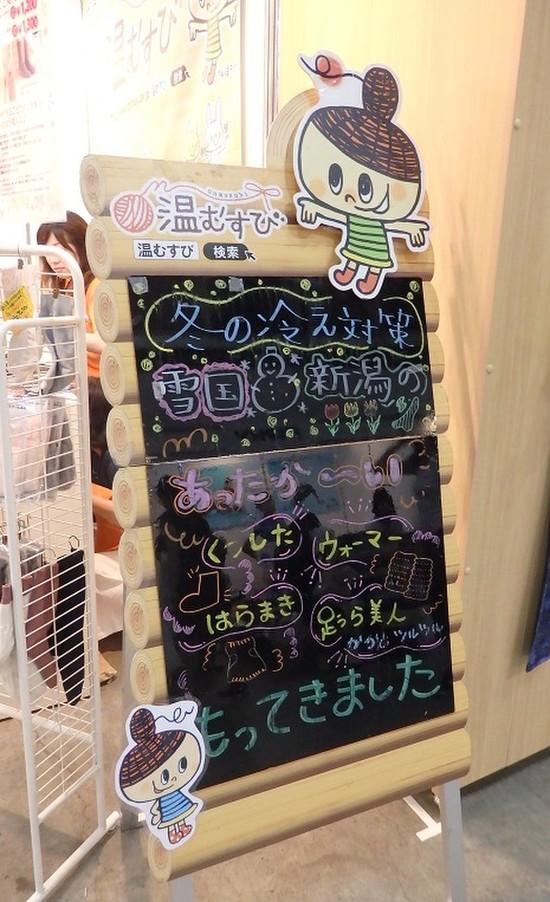 温むすび
温むすび 検索
冬の冷え対策
雪国 新潟の
あったか〜い
くつした ウォーマー
はらまき 足うら美人
かかとツルツル
もってきました
温むすび